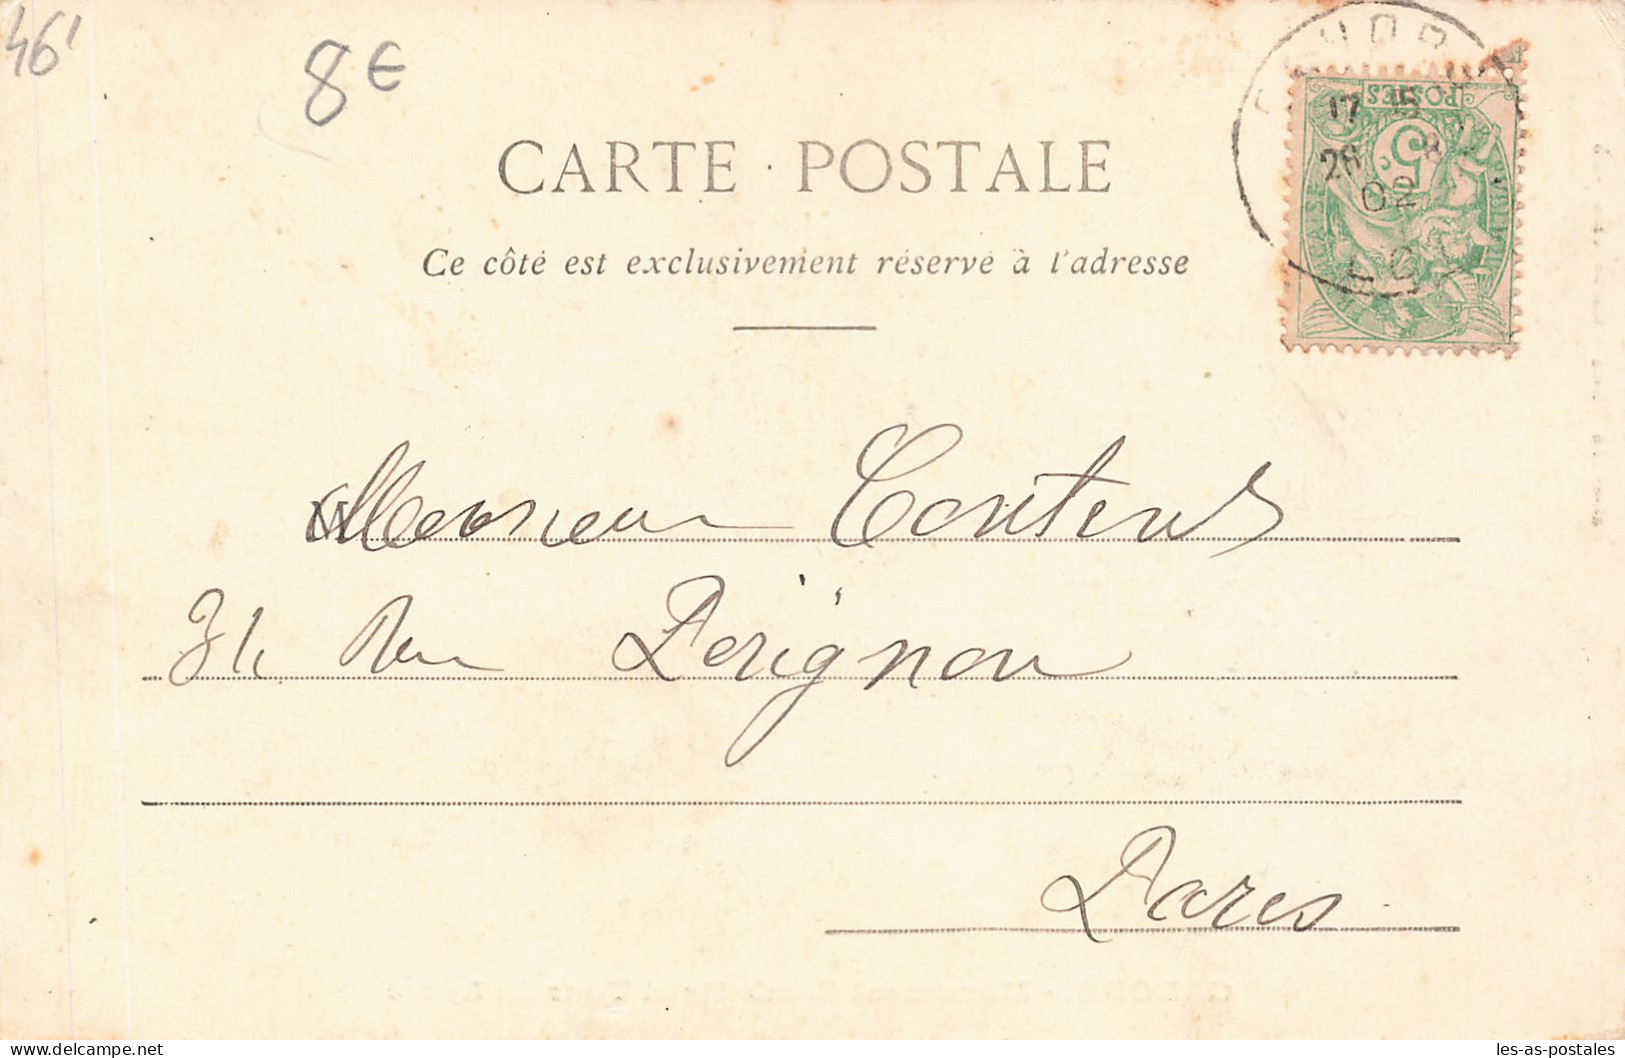 46'
8 €
CARTE POSTALE
Ce côté est exclusivement réservé à l'adresse
POSTES
5 c
17 15
26 8
02
LOT
Monsieur Contens
31, Rue Pérignon
Paris
les-as-postales
les-as-postales